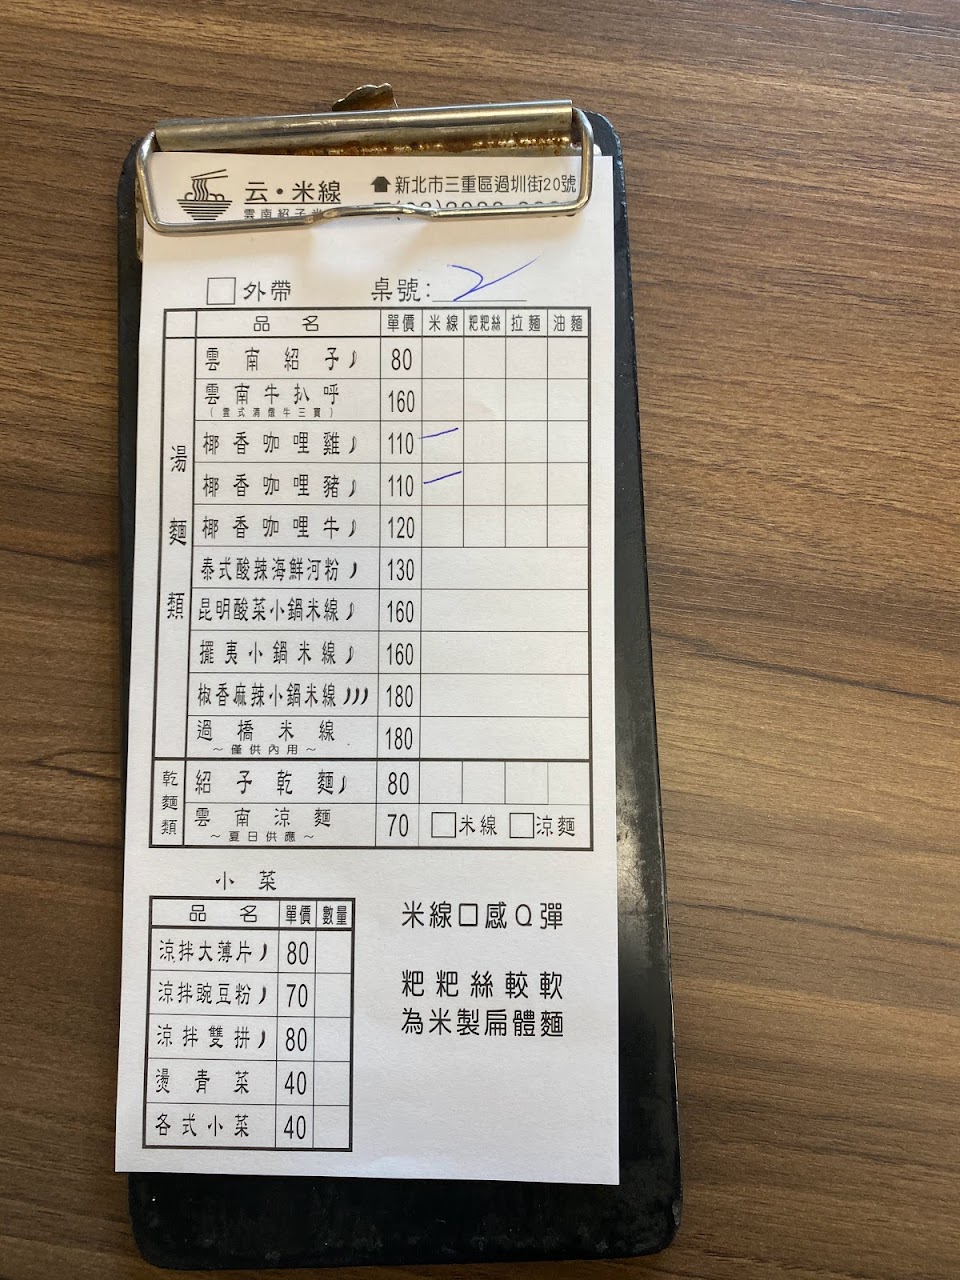 云·米線
新北市三重區過圳街20號
雲南紹子
外帶 桌號: 2
品名 單價 米線 粑粑絲 拉麵 油麵
湯麵類
雲南紹子 80
雲南牛扒呼 160
(雲式清燉牛三寶)
椰香咖哩雞 110
椰香咖哩豬 110
椰香咖哩牛 120
泰式酸辣海鮮河粉 130
昆明酸菜小鍋米線 160
擺夷小鍋米線 160
椒香麻辣小鍋米線 180
過橋米線 180
~僅供內用~
乾麵類
紹子乾麵 80
雲南涼麵 70 米線 涼麵
~夏日供應~
小菜
品名 單價 數量
涼拌大薄片 80
涼拌豌豆粉 70
涼拌雙拼 80
燙青菜 40
各式小菜 40
米線口感Q彈
粑粑絲較軟
為米製扁體麵